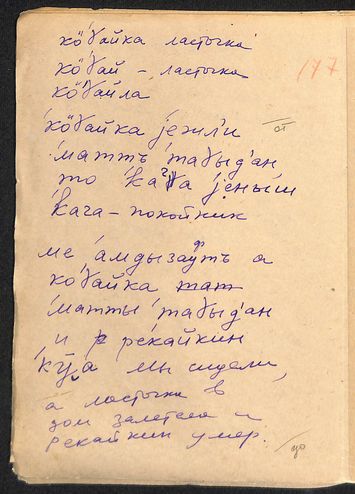 кӧ̄ɣайка ласточка
177
кӧ̄ɣай – ласточка
кӧ̄ɣайла
кӧ̄ɣайка је̄жл'и
от
ма̄ттъ та̄ɣыд'ан
то ка̄ча јеныш
ка̄ча – покойник
ме а̄мдызаӱтъ а
кӧɣайка тат
ма̄тты та̄ɣыд'ан
и рē̄кайкин
кӯ̄а мы сидели,
а ласточка в
дом залетела и
рекайкин умер.